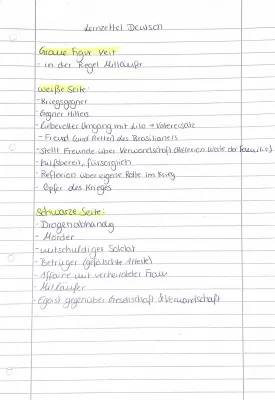 Lernzettel Deutsch
Graue Figur Veit
- in der Regel Mitläufer
weiße Seite:
- Kriegsgegner
- Gegner Hitlers
- Liebevoller Umgang mit Lilo → Vaterersatz
- Freund (und Retter) des Brasilianers
- Stellt Freunde über Verwandschaft (Reflexion Werte der Familie)
- hilfsbereit, fürsorglich
- Reflexion über eigene Rolle im Krieg
- Opfer des Krieges
schwarze Seite:
- Drogenabhängig
- Mörder
- mitschuldiger Soldat
- Betrüger (gefälschte Atteste)
- Affaire mit verheirateter Frau
- Mitläufer
- Egoist gegenüber Gesellschaft & Verwandschaft